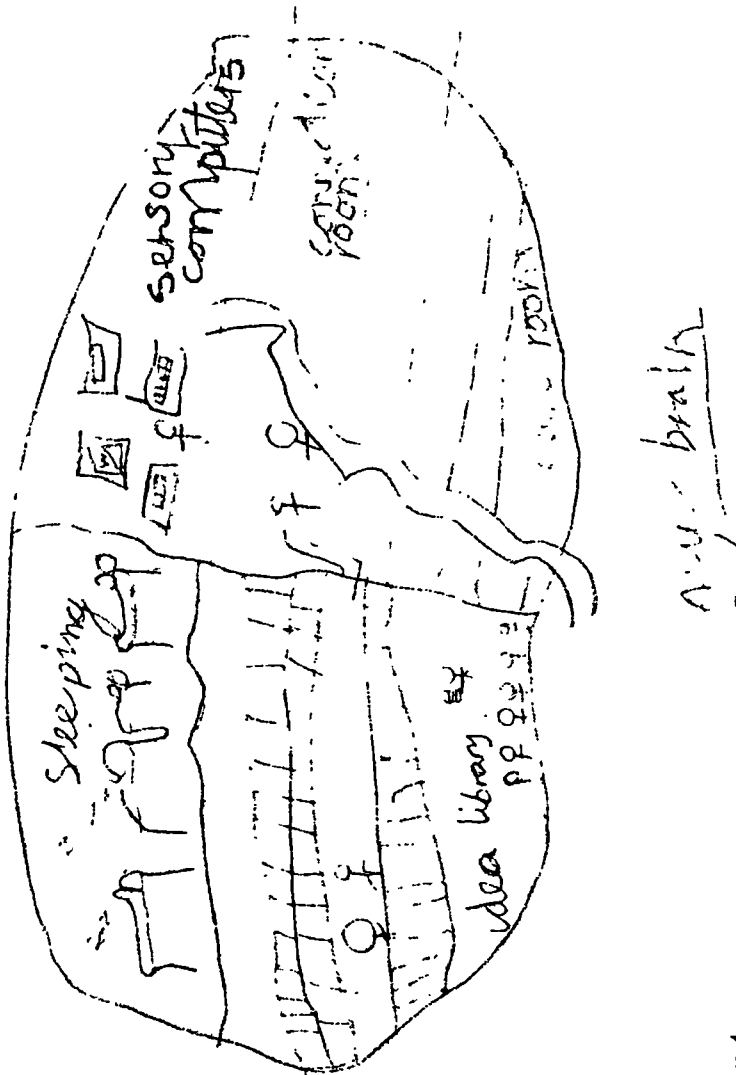 sleeping
sensory
computers
room
idea library
room
my brain